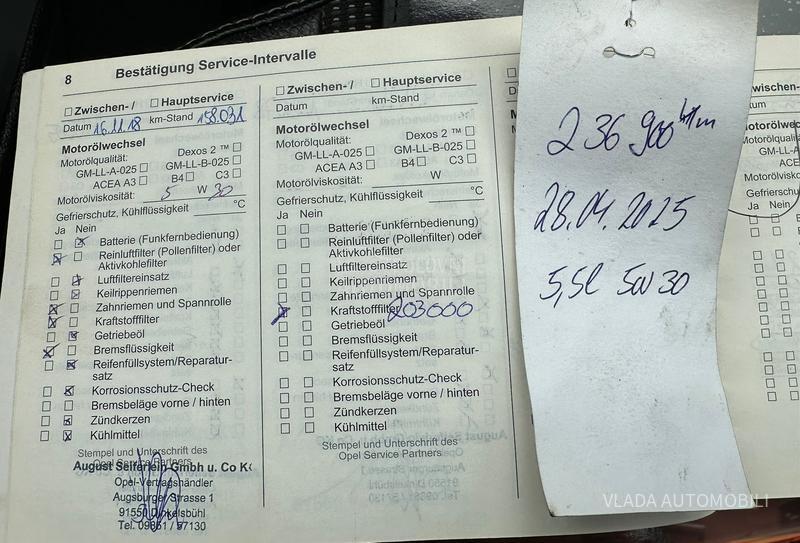 8 Bestätigung Service-Intervalle
Zwischen-/ Hauptservice
Datum 16.11.18 km-Stand 158.031
Motorölwechsel
Motorölqualität: Dexos 2 ™
GM-LL-A-025 GM-LL-B-025
ACEA A3 B4 C3
Motorölviskosität: 5 W 30
Gefrierschutz, Kühlflüssigkeit °C
Ja Nein
Batterie (Funkfernbedienung)
Reinluftfilter (Pollenfilter) oder
Aktivkohlefilter
Luftfiltereinsatz
Keilrippenriemen
Zahnriemen und Spannrolle
Kraftstofffilter
Getriebeöl
Bremsflüssigkeit
Reifenfüllsystem/Reparatur-
satz
Korrosionsschutz-Check
Bremsbeläge vorne / hinten
Zündkerzen
Kühlmittel
Stempel und Unterschrift des
Opel Service Partners
August Seiferlein Gmbh u. Co K
Opel-Vertragshändler
Augsburger Strasse 1
91550 Dinkelsbühl
Tel. 09851 / 57130
Zwischen-/ Hauptservice
Datum km-Stand
Motorölwechsel
Motorölqualität: Dexos 2 ™
GM-LL-A-025 GM-LL-B-025
ACEA A3 B4 C3
Motorölviskosität: W
Gefrierschutz, Kühlflüssigkeit °C
Ja Nein
Batterie (Funkfernbedienung)
Reinluftfilter (Pollenfilter) oder
Aktivkohlefilter
Luftfiltereinsatz
Keilrippenriemen
Zahnriemen und Spannrolle
Kraftstofffilter 203000
Getriebeöl
Bremsflüssigkeit
Reifenfüllsystem/Reparatur-
satz
Korrosionsschutz-Check
Bremsbeläge vorne / hinten
Zündkerzen
Kühlmittel
Stempel und Unterschrift des
Opel Service Partners
236 900 km
28.04.2025
5,5l 5W30
Ja Nein
VLADA AUTOMOBILI